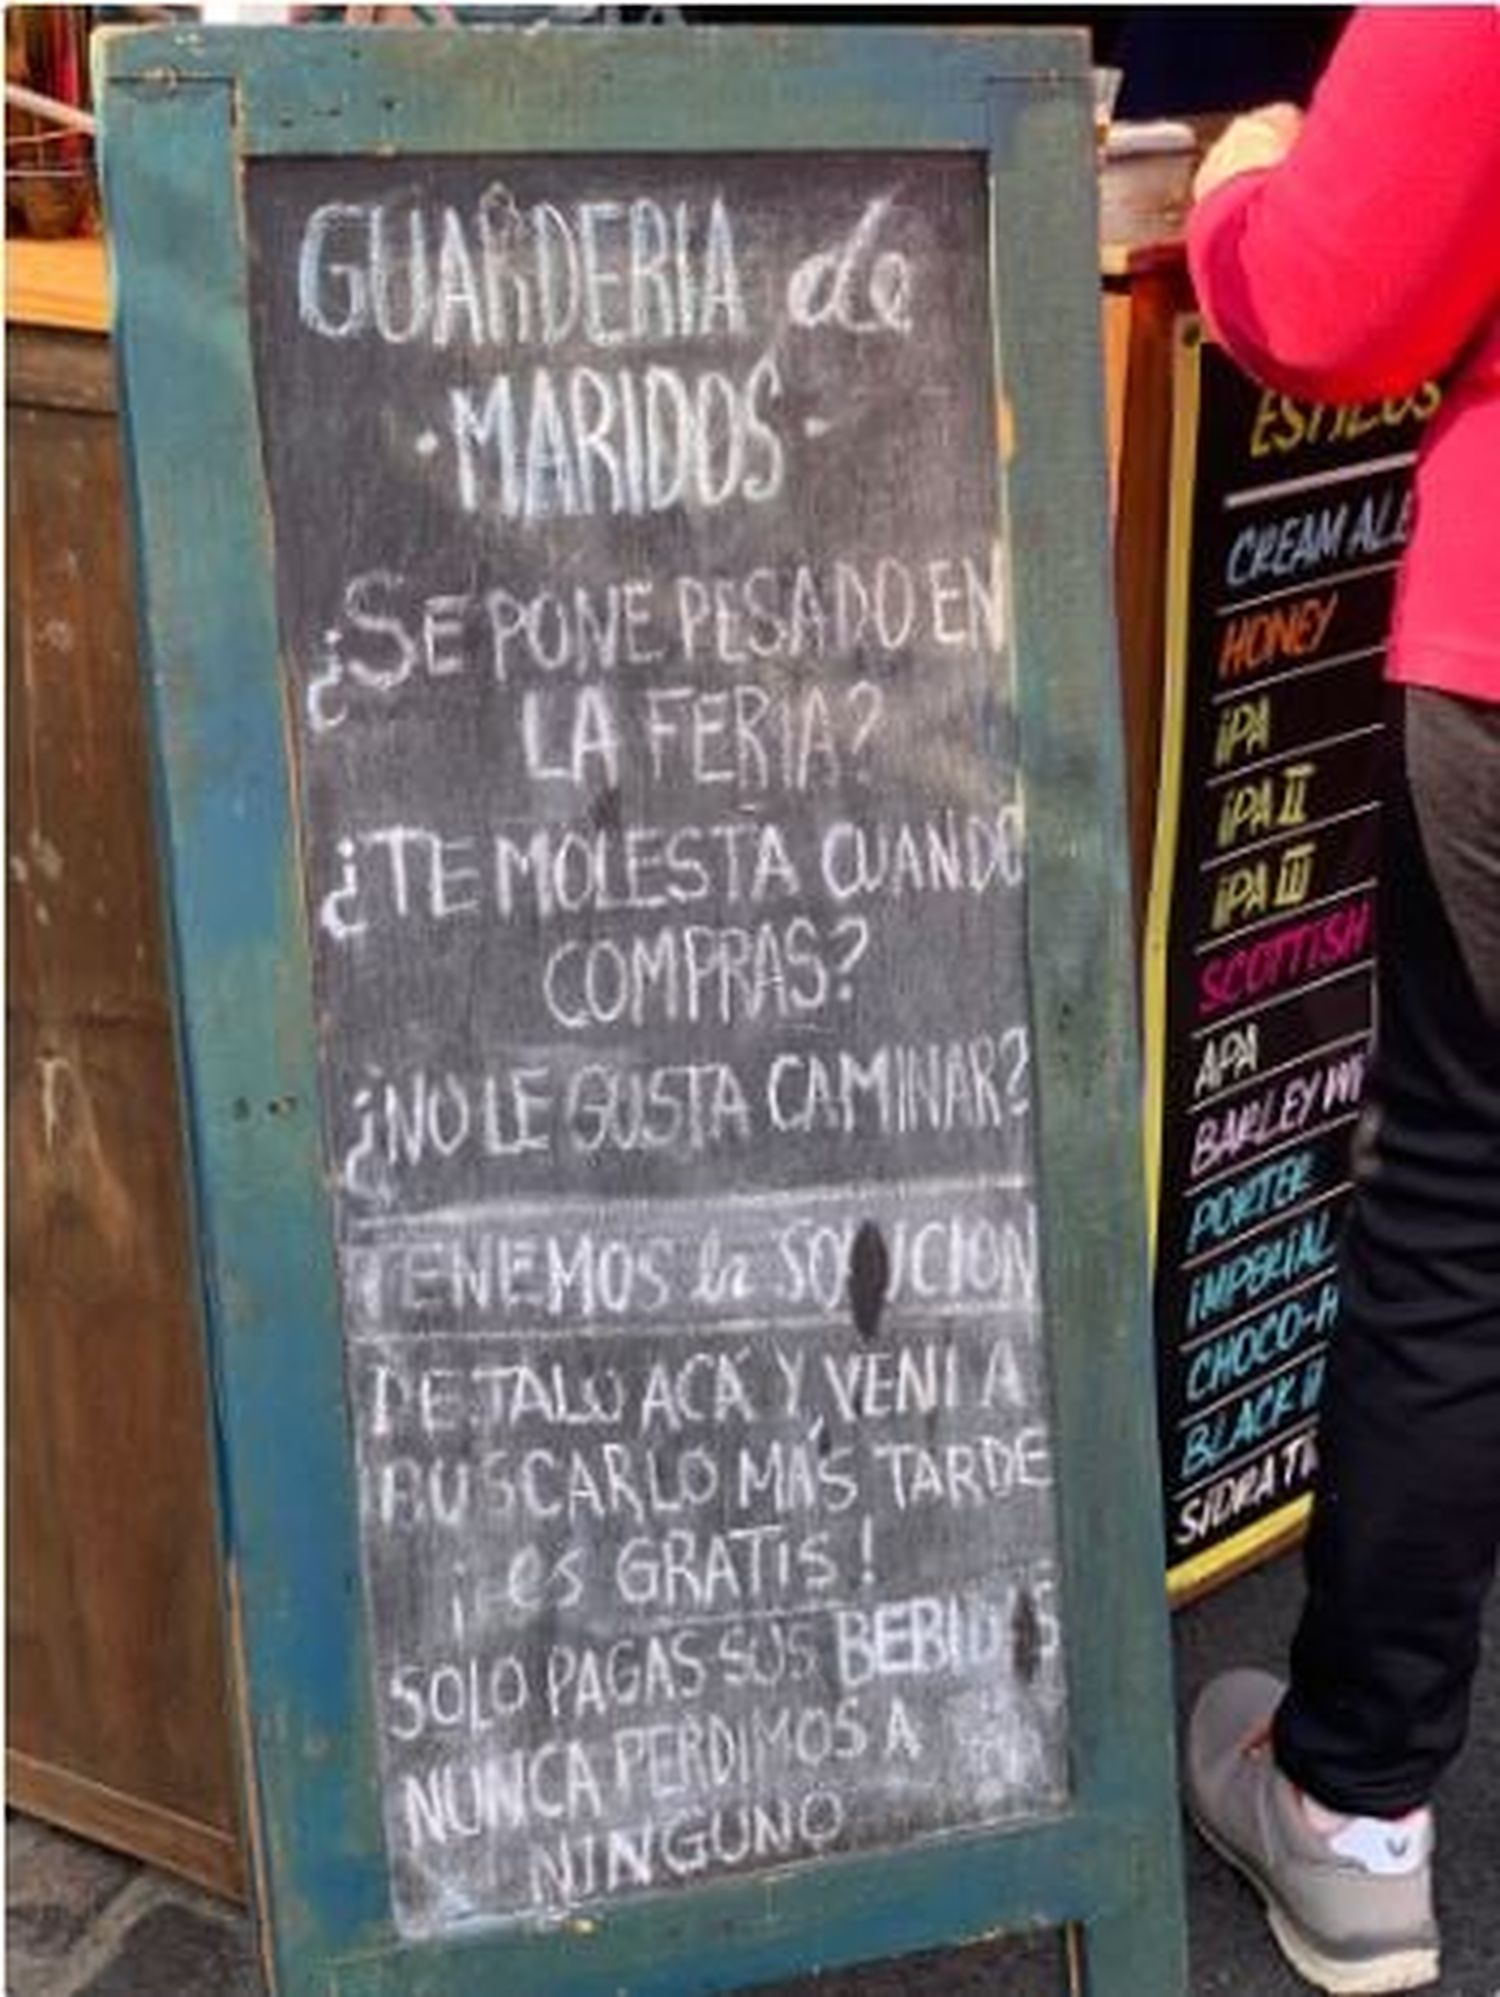 GUARDERIA de
·MARIDOS·
¿SE PONE PESADO EN
LA FERIA?
¿TE MOLESTA CUANDO
COMPRAS?
¿NO LE GUSTA CAMINAR?
TENEMOS la SOLUCION
DEJALO ACÁ Y VENI A
BUSCARLO MÁS TARDE
¡es GRATIS!
SOLO PAGAS SUS BEBIDAS
NUNCA PERDIMOS A
NINGUNO
ESTILOS
CREAM ALE
HONEY
iPA
iPA II
iPA III
SCOTTISH
APA
BARLEY
PORTER
IMPERIAL
CHOCO-
BLACK
SIDRA